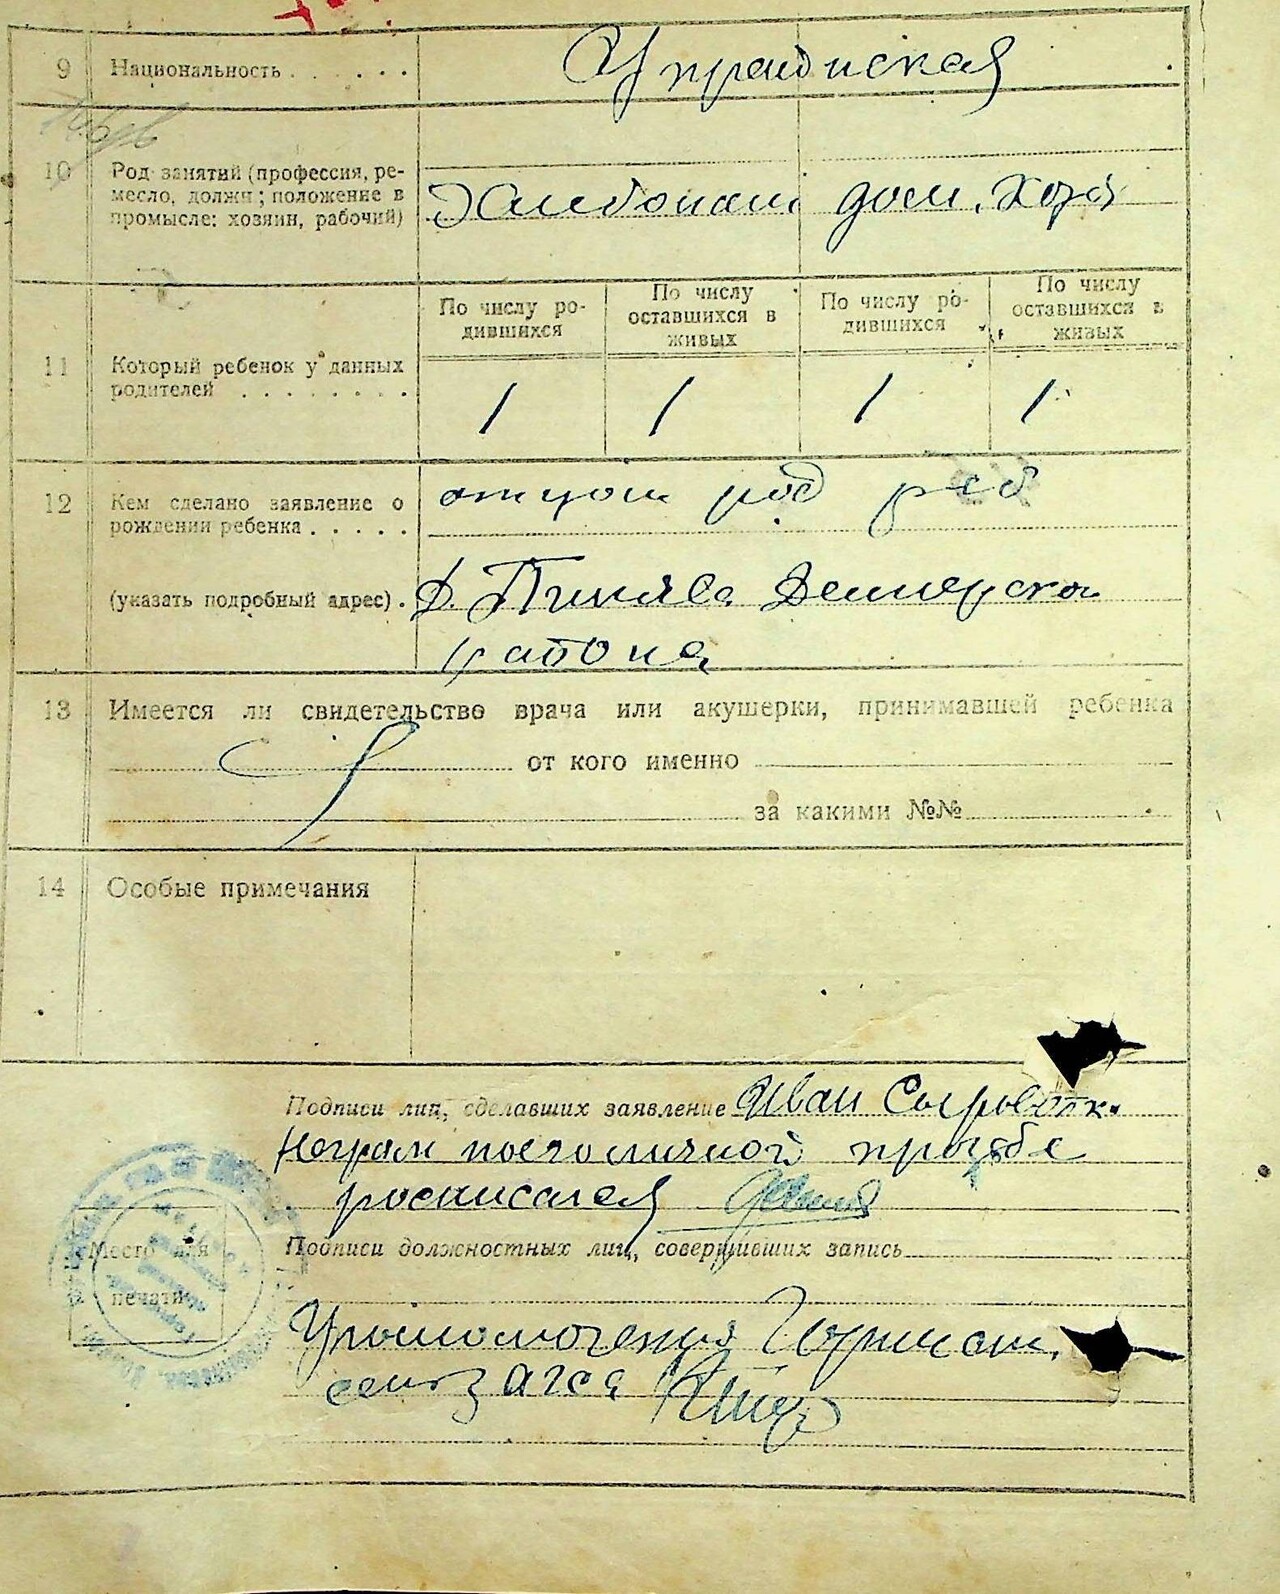 9 Национальность . . . . . .
Украинская
10 Род занятий (профессия, ре-
месло, должн; положение в
промысле: хозяин, рабочий)
дом. хоз
По числу ро-
дившихся
По числу
оставшихся в
живых
По числу ро-
дившихся
По числу
оставшихся в
живых
11 Который ребенок у данных
родителей . . . . . . . .
1 1 1 1
12 Кем сделано заявление о
рождении ребенка . . . . .
отцом род реб
(указать подробный адрес) .
района
13 Имеется ли свидетельство врача или акушерки, принимавшей ребенка
от кого именно
за какими №№
14 Особые примечания
Подписи лиц, сделавших заявление Иван Сыроватк.
по его личной прозбе
росписался
Место для
печати
Подписи должностных лиц, совершивших запись
загса